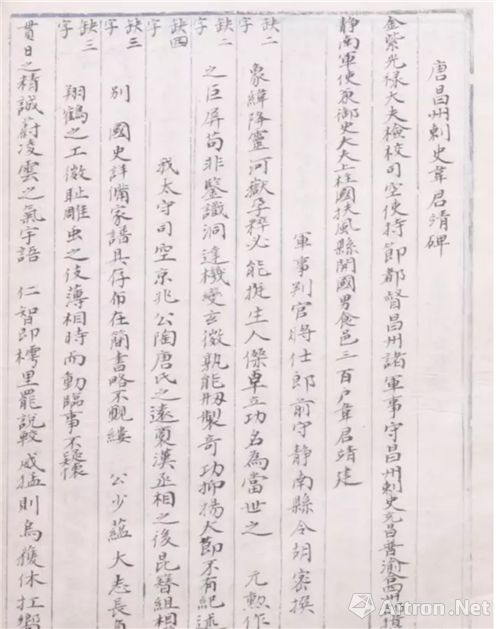 唐昌州刺史韋君靖碑
金紫光祿大夫檢校司空使持節都督昌州諸軍事守昌州刺史充昌普渝合四州
靜南軍使兼御史大夫上柱國扶風縣開國男食邑三百户韋君靖建
軍事判官將仕郎前守靜南縣令胡密撰
缺二字 象緯降靈河嶽孕粹必能挺生人傑卓立功名為當世之 元勲作
缺二字 之巨屏苟非鑒識洞達機變玄微孰能刱製奇功抑揚大節不有紀述
缺四字 我太守司空京兆公陶唐氏之遠裔漢丞相之後昆簪組相
缺三字 別 國史詳備家譜具存布在簡書略不覼縷 公少藴大志長
缺三字 翔鶴之工微耻雕虫之伎薄相時而動臨事不疑懷
貫日之精誠蔚凌雲之氣宇語 仁智即樗里罷說較威猛則烏獲休扛
Artron.Net